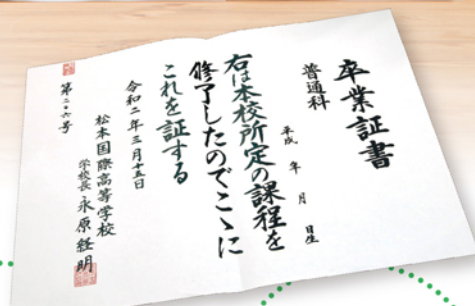 卒業証書
普通科
平成 年 月 日生
右は本校所定の課程を
修了したのでこゝに
これを証する
令和二年三月十五日
松本国際高等学校
学校長 永原経明
第二六号